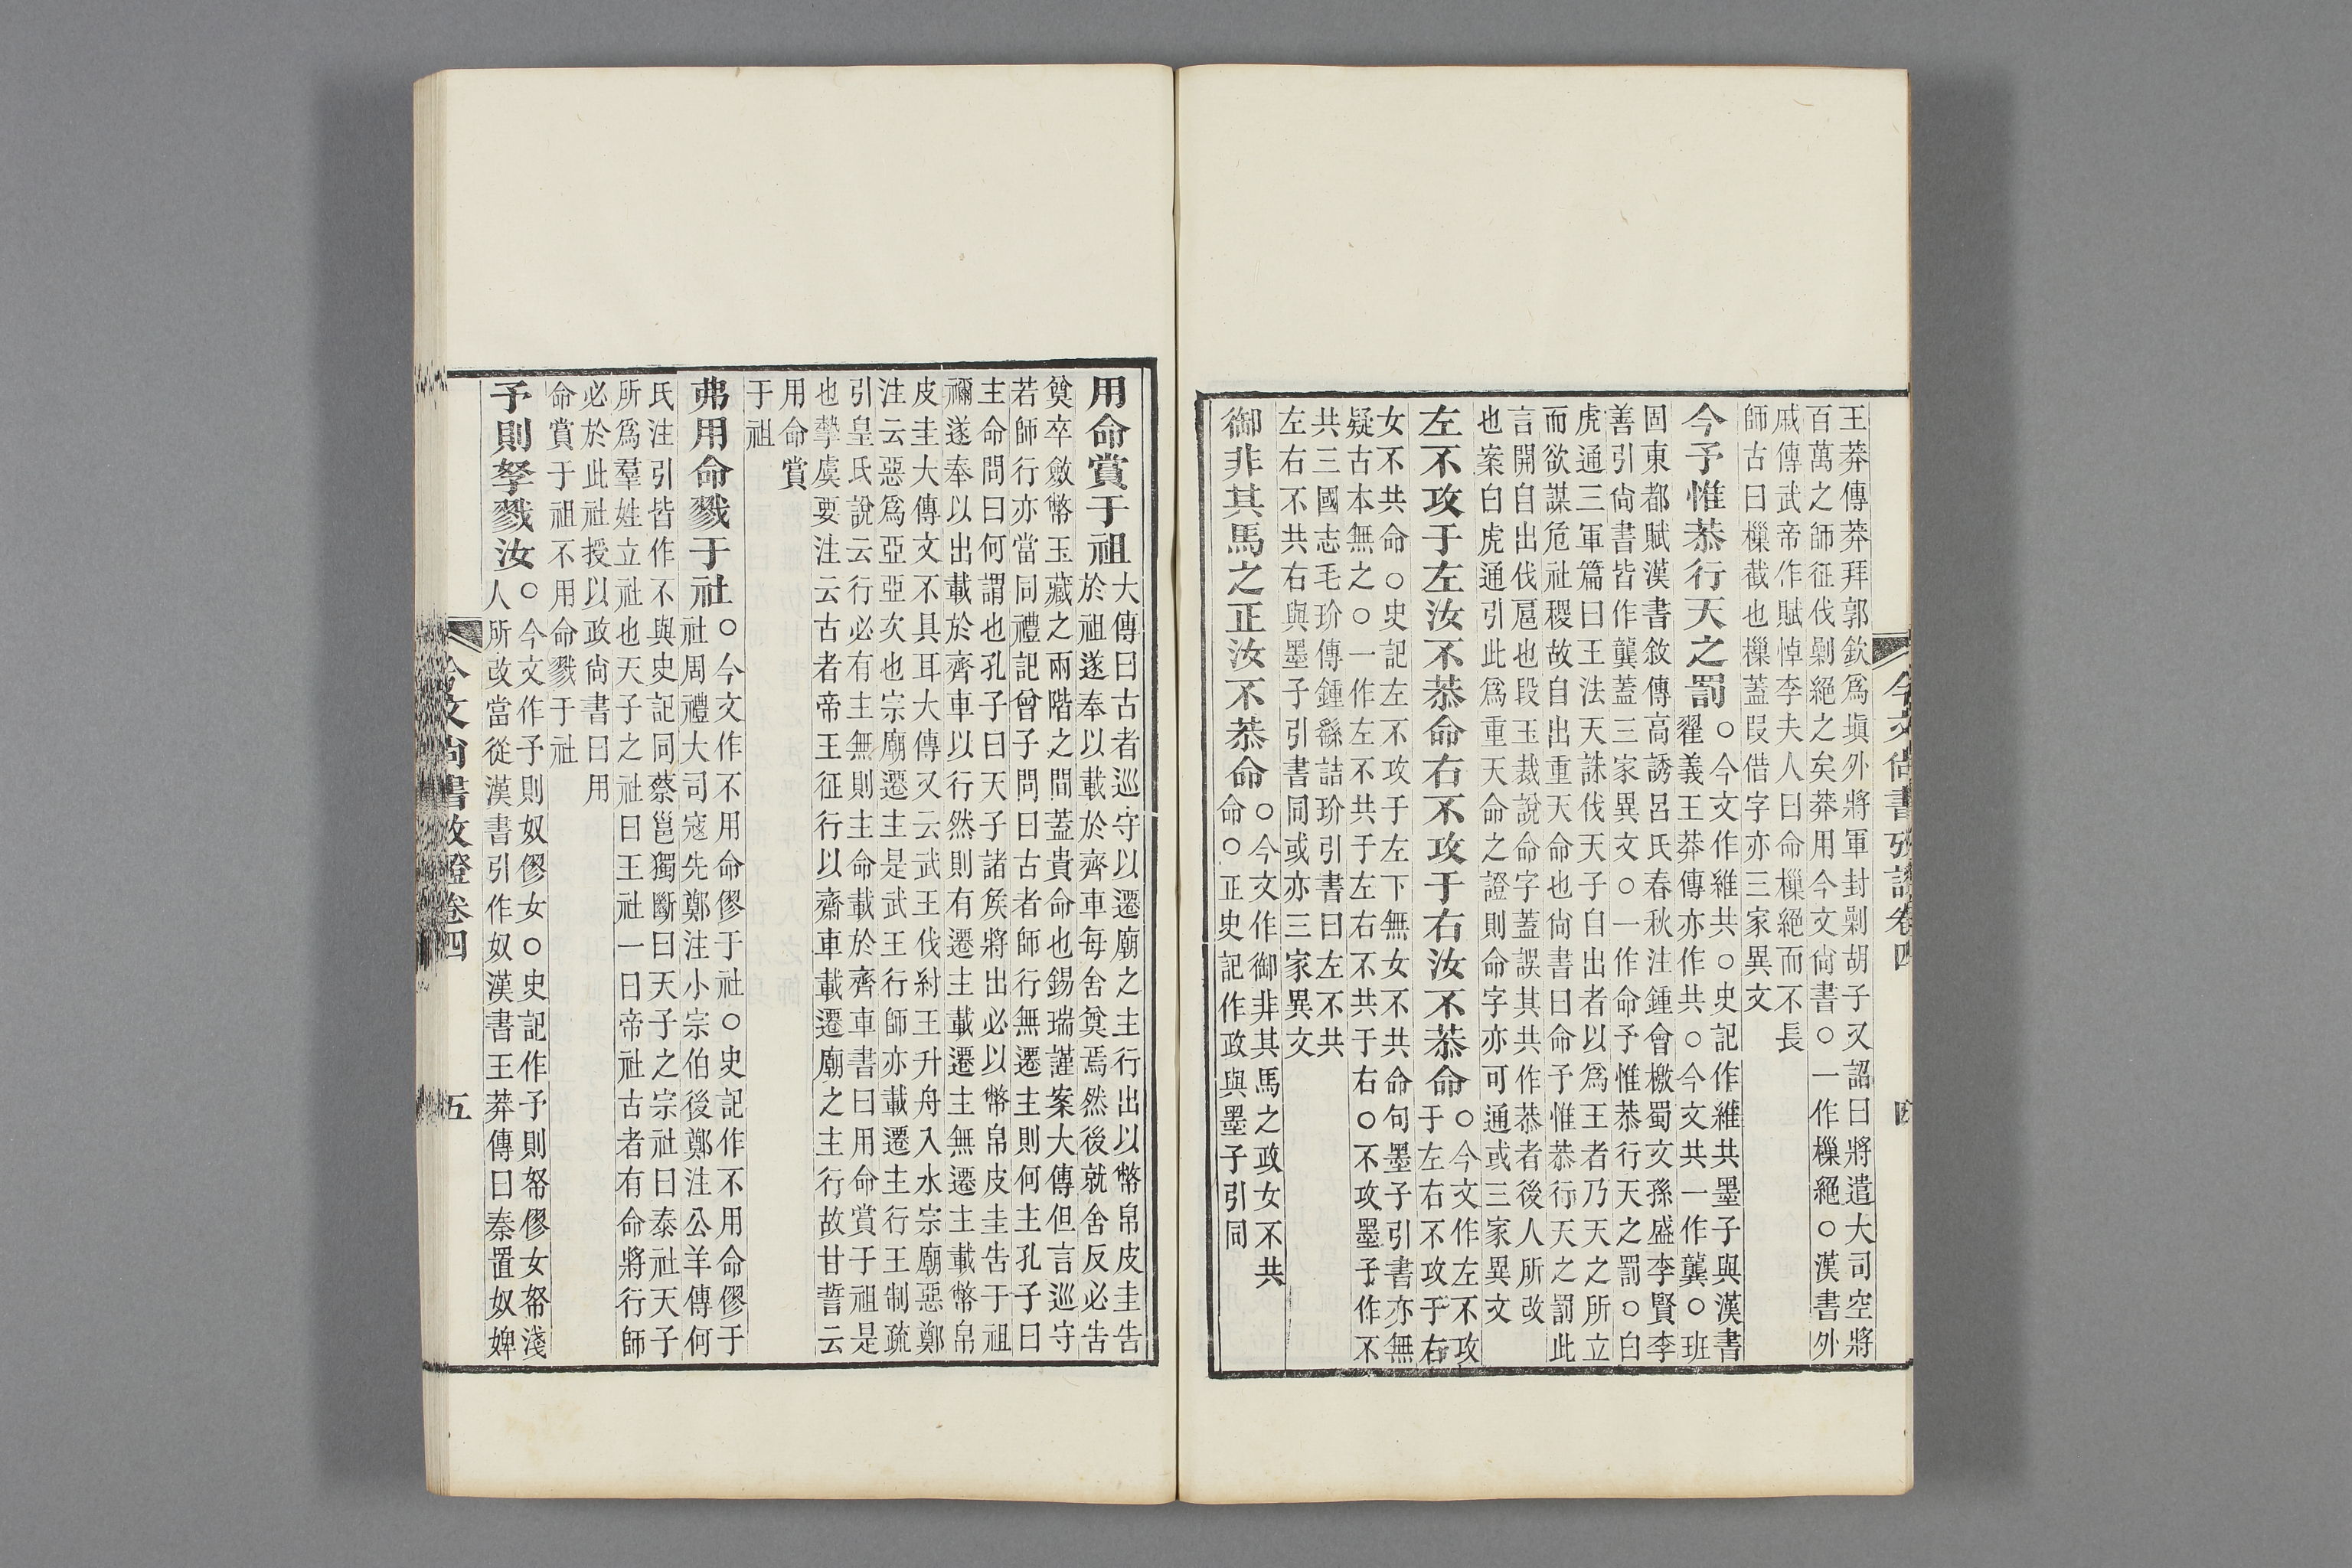 王莽傳莽拜郭欽爲塡外將軍封剿胡子又詔曰將遣大司空將
百萬之師征伐剿絕之矣莽用今文尙書○一作樔絕○漢書外
戚傳武帝作賦悼李夫人曰命樔絕而不長
師古曰樔截也樔蓋叚借字亦三家異文
今予惟恭行天之罰○今文作維共○史記作維共墨子與漢書
翟義王莽傳亦作共○今文共一作龔○班
固東都賦漢書敘傳高誘呂氏春秋注鍾會檄蜀文孫盛李賢李
善引尙書皆作龔蓋三家異文○一作命予惟恭行天之罰○白
虎通三軍篇曰王法天誅伐天子自出者以爲王者乃天之所立
而欲謀危社稷故自出重天命也尙書曰命予惟恭行天之罰此
言開自出伐扈也段玉裁說命字蓋誤其共作恭者後人所改
也案白虎通引此爲重天命之證則命字亦可通或三家異文
左不攻于左汝不恭命右不攻于右汝不恭命○今文作左不攻
于左右不攻于右
女不共命○史記左不攻于左下無女不共命句墨子引書亦無
疑古本無之○一作左不共于左右不共于右○不攻墨子作不
共三國志毛玠傳鍾繇詰玠引書曰左不共
左右不共右與墨子引書同或亦三家異文
御非其馬之正汝不恭命○今文作御非其馬之政女不共
命○正史記作政與墨子引同
今文尙書攷證卷四
四
用命賞于祖大傳曰古者巡守以遷廟之主行出以幣帛皮圭告
於祖遂奉以載於齊車每舍奠焉然後就舍反必告
奠卒斂幣玉藏之兩階之間蓋貴命也錫瑞謹案大傳但言巡守
若師行亦當同禮記曾子問曰古者師行無遷主則何主孔子曰
主命問曰何謂也孔子曰天子諸矦將出必以幣帛皮圭告于祖
禰遂奉以出載於齊車以行然則有遷主載遷主無遷主載幣帛
皮圭大傳文不具耳大傳又云武王伐紂王升舟入水宗廟惡鄭
注云惡爲亞亞次也宗廟遷主是武王行師亦載遷主行王制疏
引皇氏說云行必有主無則主命載於齊車書曰用命賞于祖是
也摯虞要注云古者帝王征行以齋車載遷廟之主行故甘誓云
用命賞
于祖
弗用命戮于社○今文作不用命僇于社○史記作不用命僇于
社周禮大司寇先鄭注小宗伯後鄭注公羊傳何
氏注引皆作不與史記同蔡邕獨斷曰天子之宗社曰泰社天子
所爲羣姓立社也天子之社曰王社一曰帝社古者有命將行師
必於此社授以政尙書曰用
命賞于祖不用命戮于社
予則孥戮汝○今文作予則奴僇女○史記作予則帑僇女帑淺
人所改當從漢書引作奴漢書王莽傳曰秦置奴婢
今文尙書攷證卷四
五